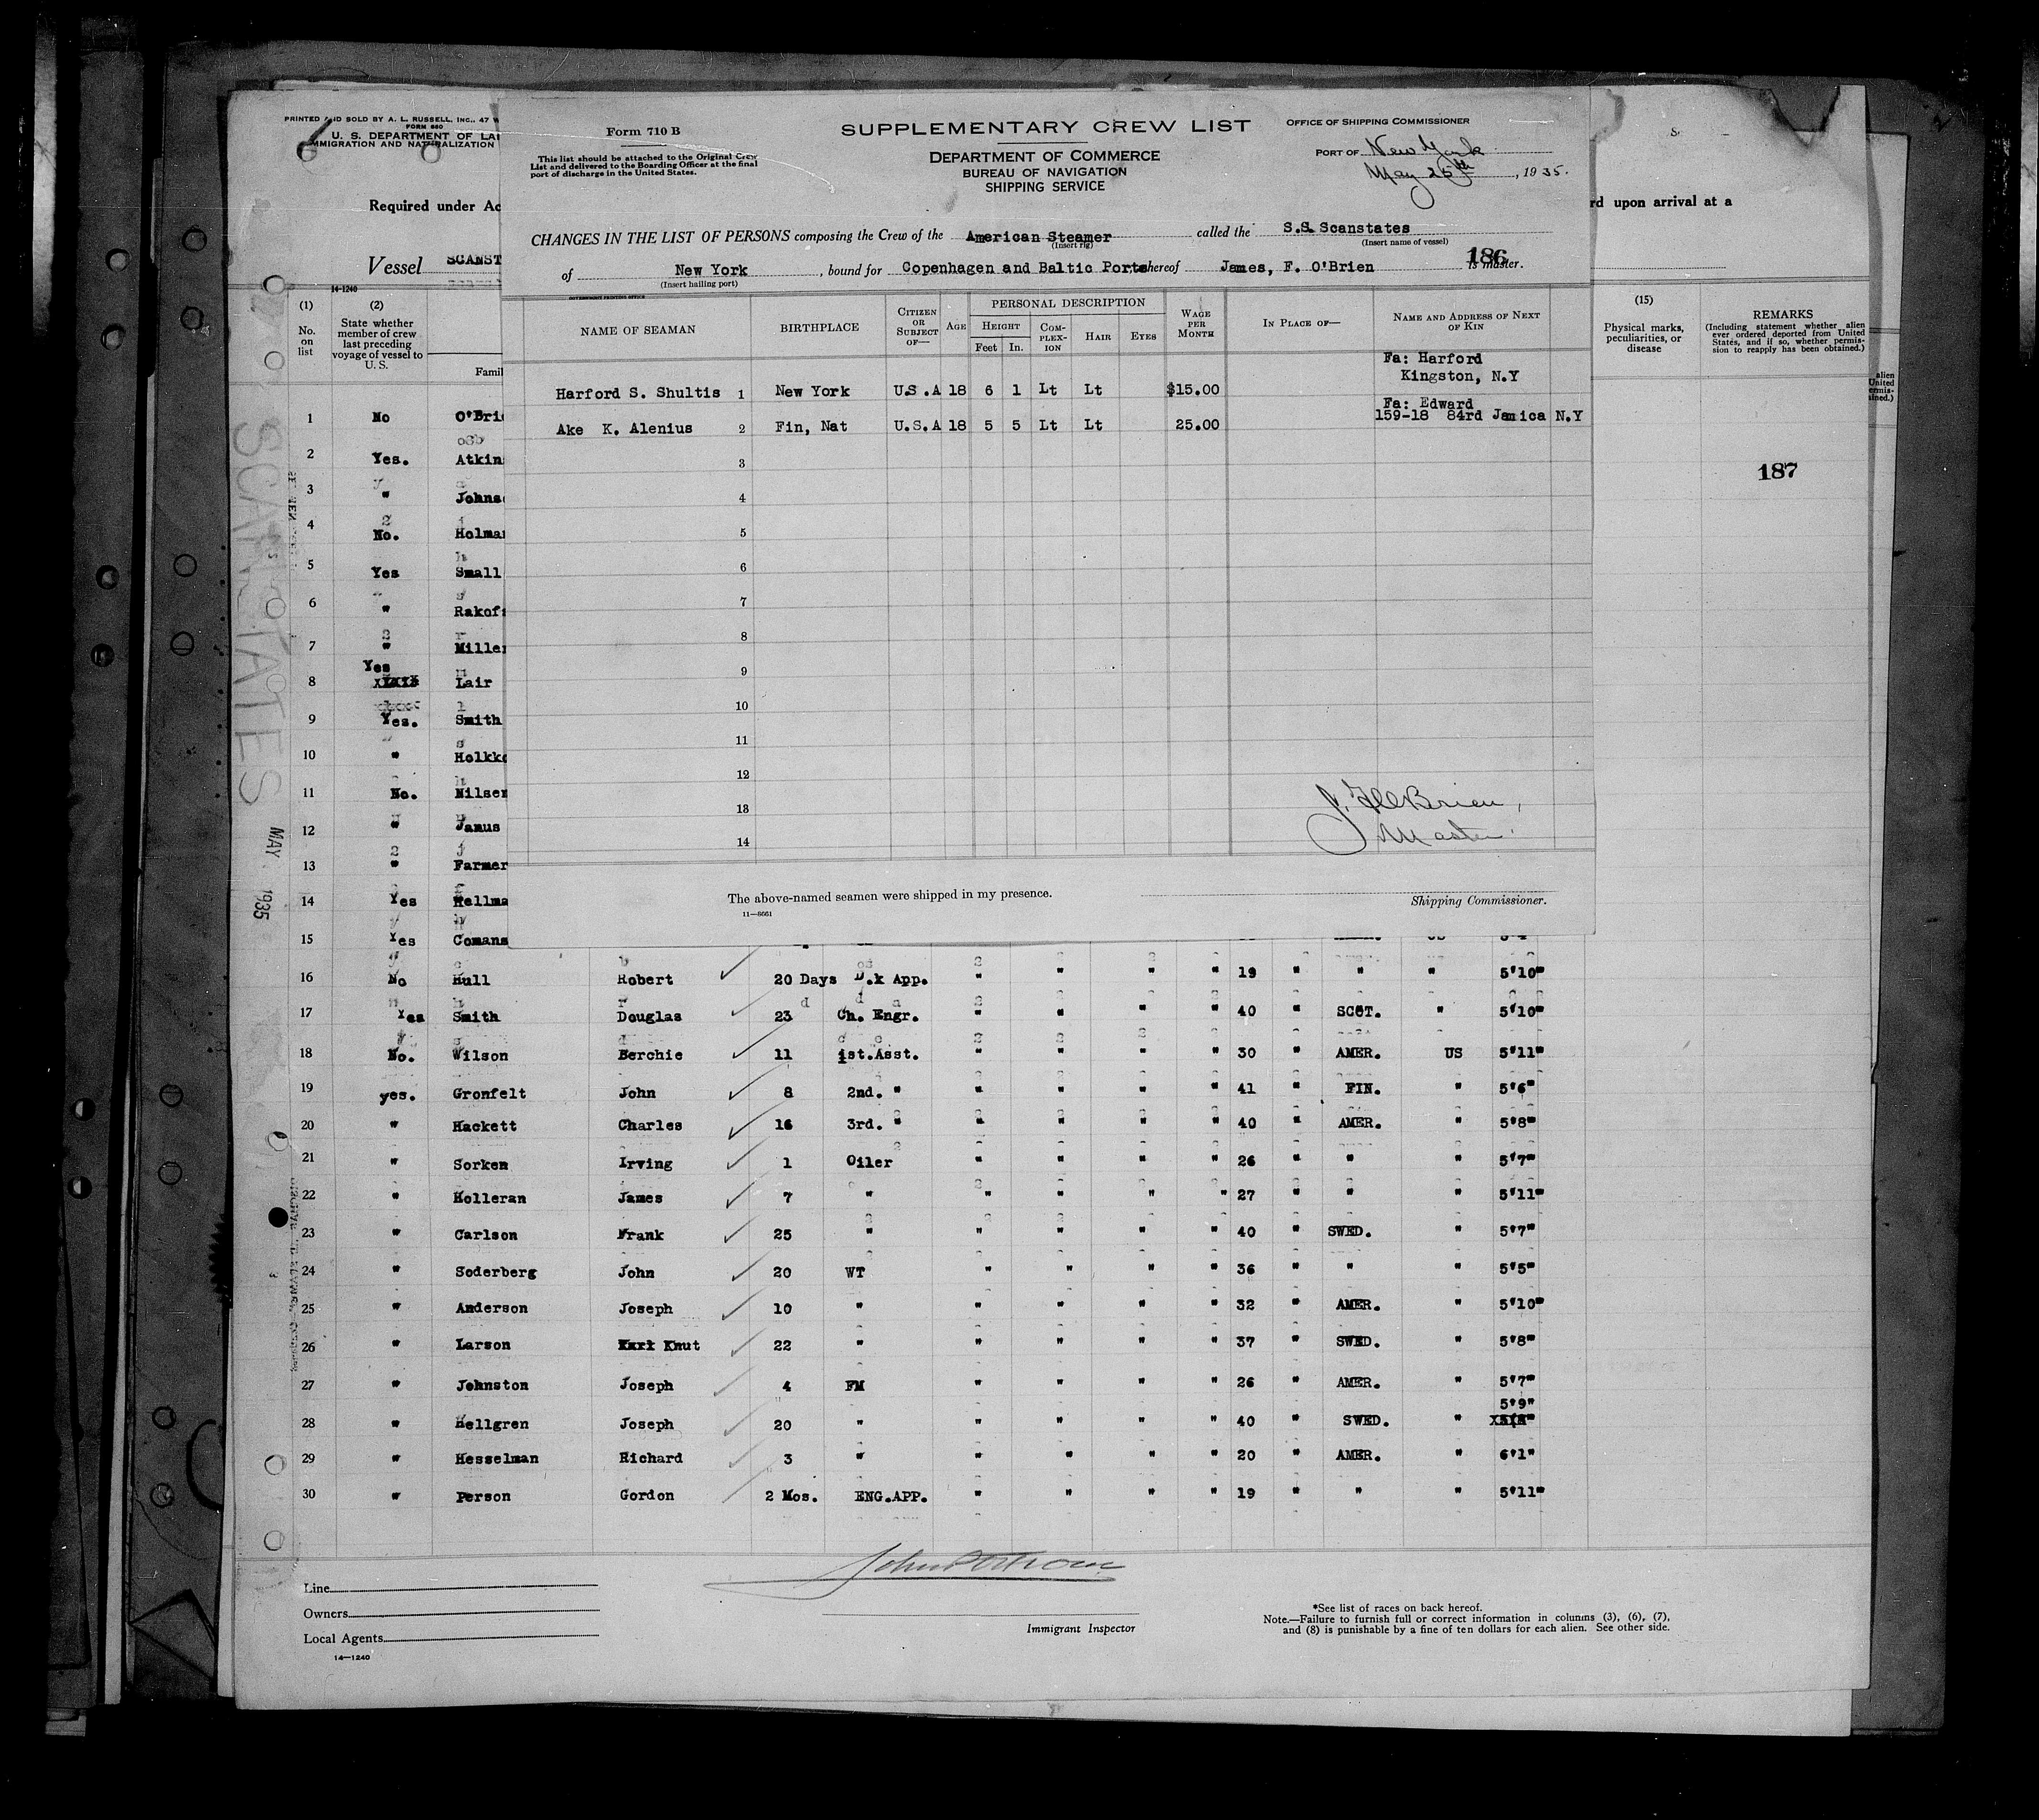 PRINTED AND SOLD BY A. L. RUSSELL, INC., 47 W
FORM 680
U. S. DEPARTMENT OF LA
IMMIGRATION AND NATURALIZATION
Required under Ac
Vessel SCANST
14-1240
(1) (2)
No. on list
State whether member of crew last preceding voyage of vessel to U. S.
Famil
Form 710 B
This list should be attached to the Original Crew
List and delivered to the Boarding Officer at the final
port of discharge in the United States.
SUPPLEMENTARY CREW LIST
DEPARTMENT OF COMMERCE
BUREAU OF NAVIGATION
SHIPPING SERVICE
OFFICE OF SHIPPING COMMISSIONER
PORT OF New York
May 25th, 1935.
CHANGES IN THE LIST OF PERSONS composing the Crew of the American Steamer called the S.S. Scanstates
(Insert rig) (Insert name of vessel)
186
of New York, bound for Copenhagen and Baltic Ports hereof James, F. O'Brien is master.
(Insert hailing port)
GOVERNMENT PRINTING OFFICE
NAME OF SEAMAN BIRTHPLACE CITIZEN OR SUBJECT OF— AGE PERSONAL DESCRIPTION WAGE PER MONTH IN PLACE OF— NAME AND ADDRESS OF NEXT OF KIN
HEIGHT COMPLEXION HAIR EYES
Feet In.
Fa: Harford
Kingston, N.Y
Harford S. Shultis 1 New York U.S.A 18 6 1 Lt Lt $15.00
Fa: Edward
159-18 84rd Jamica N.Y
Ake K. Alenius 2 Fin, Nat U.S.A 18 5 5 Lt Lt 25.00
3
4
5
6
7
8
9
10
11
12
13
14
J. F. O'Brien,
Master.
The above-named seamen were shipped in my presence.
11—8661
Shipping Commissioner.
rd upon arrival at a
(15)
Physical marks, peculiarities, or disease
REMARKS
(Including statement whether alien ever ordered deported from United States, and if so, whether permission to reapply has been obtained.)
187
SCANSTATES
MAY 1935
1 No O'Brie
2 Yes. Atkin
3 " Johns
4 No. Holma
5 Yes Small
6 " Rakof
7 " Mille
Yes
8 Lair
9 Yes. Smith
10 " Holkk
11 No. Nilse
12 " Janus
13 " Farmer
14 Yes Hellma
15 Yes Comans
16 No Hull Robert 20 Days D.k App. " " " " 19 " " " 5'10"
17 Yes Smith Douglas 23 Ch. Engr. " " " " 40 " SCOT. " 5'10"
18 No. Wilson Berchie 11 1st.Asst. " " " " 30 " AMER. US 5'11"
19 yes. Gronfelt John 8 2nd. " " " " " 41 " FIN. " 5'6"
20 " Hackett Charles 16 3rd. " " " " " 40 " AMER. " 5'8"
21 " Sorken Irving 1 Oiler " " " " 26 " " " 5'7"
22 " Holleran James 7 " " " " " 27 " " " 5'11"
23 " Carlson Frank 25 " " " " " 40 " SWED. " 5'7"
24 " Soderberg John 20 WT " " " " 36 " " " 5'5"
25 " Anderson Joseph 10 " " " " " 32 " AMER. " 5'10"
26 " Larson Karl Knut 22 " " " " " 37 " SWED. " 5'8"
27 " Johnston Joseph 4 FM " " " " 26 " AMER. " 5'7"
5'9"
28 " Hellgren Joseph 20 " " " " " 40 " SWED. "
29 " Hesselman Richard 3 " " " " " 20 " AMER. " 6'1"
30 " Person Gordon 2 Mos. ENG.APP. " " " " 19 " " " 5'11"
Line
Owners
Local Agents
14—1240
Immigrant Inspector
*See list of races on back hereof.
Note.—Failure to furnish full or correct information in columns (3), (6), (7),
and (8) is punishable by a fine of ten dollars for each alien. See other side.